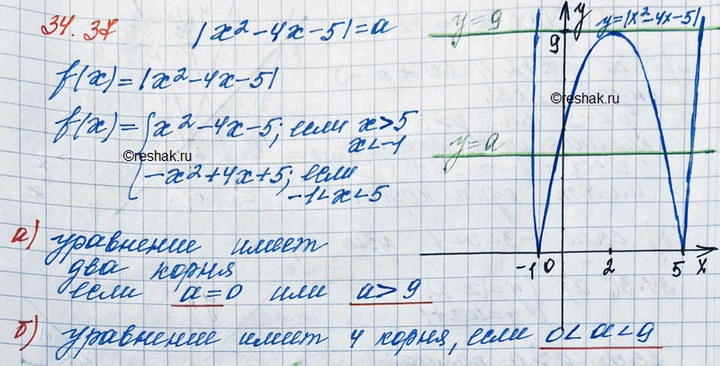 34.37
|x²-4x-5|=a
f(x)=|x²-4x-5|
f(x)={x²-4x-5; если x>5
x<-1
©reshak.ru
-x²+4x+5; если
-1<x<5
а) уравнение имеет
два корня
если a=0 или a>9
б) уравнение имеет 4 корня, если 0<a<9
y=9
9
y
y=|x²-4x-5|
©reshak.ru
y=a
-1 0 2 5 x